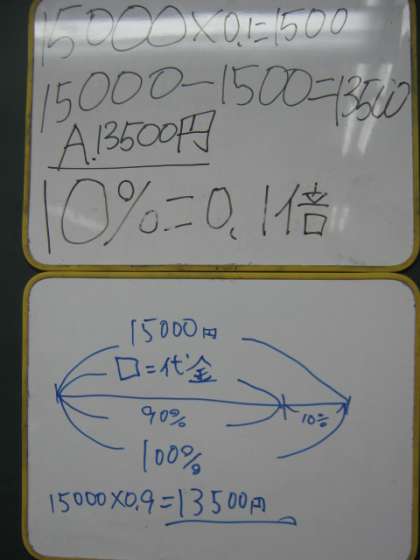 15000×0.1=1500
15000-1500=13500
A.13500円
10%=0.1倍
15000円
□=代金
90%
10%
100%
15000×0.9=13500円